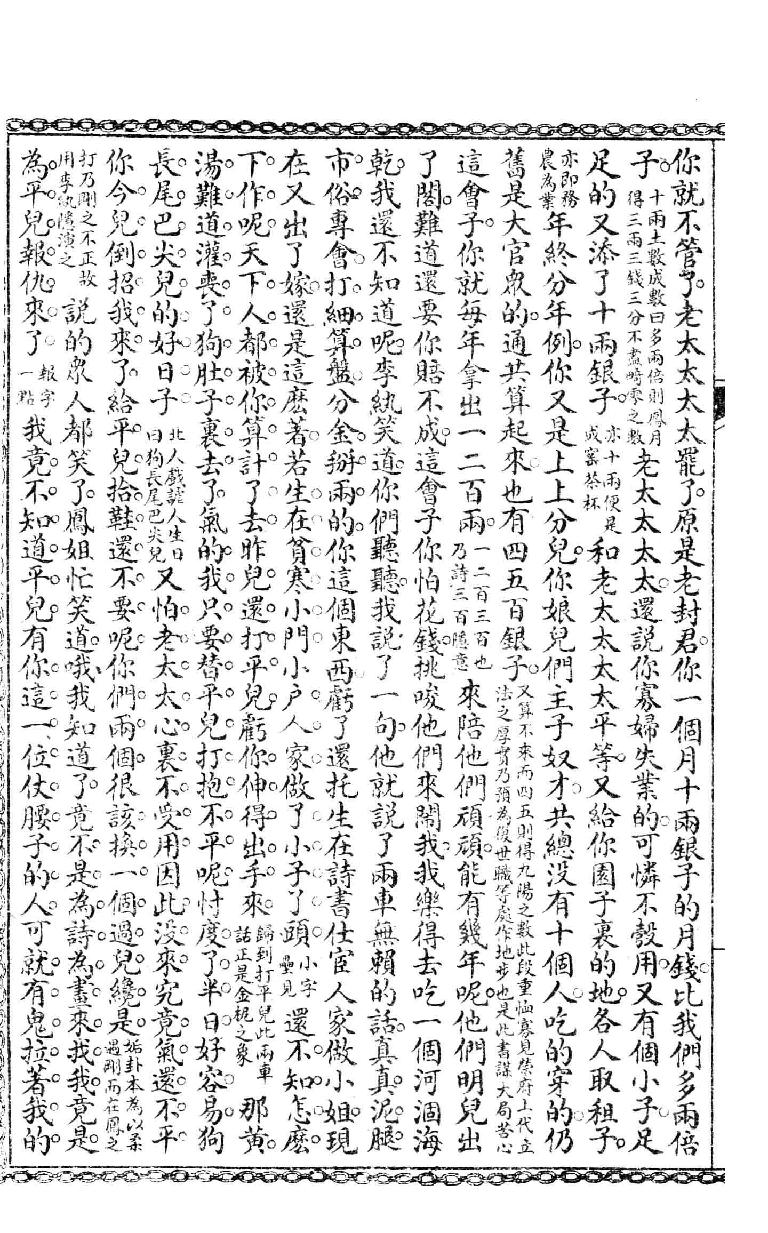 你就不管了老太太太太罷了原是老封君你一個月十兩銀子的月錢比我們多兩倍
子十兩土數成數曰多兩倍則鳳月得三兩三錢三分不盡時零之數老太太太太還說你寡婦失業的可憐不彀用又有個小子足
足的又添了十兩銀子亦十兩便是成窰茶杯和老太太太太平等又給你園子裏的地各人取租子
亦即務農為業年終分年例你又是上上分兒你娘兒們主子奴才共總沒有十個人吃的穿的仍
舊是大官眾的通共算起來也有四五百銀子又算不來而四五則得九陽之數此段重恤寡見榮府上代立法之厚實乃預為復世職等處作地步也是此書謀大局苦心
這會子你就每年拿出一二百兩一二百三百也乃詩三百隱意來陪他們頑頑能有幾年呢他們明兒出
了閣難道還要你賠不成這會子你怕花錢挑唆他們來鬧我我樂得去吃一個河涸海
乾我還不知道呢李紈笑道你們聽聽我說了一句他就說了兩車無賴的話真真泥腿
市俗專會打細算盤分金掰兩的你這個東西虧了還托生在詩書仕宦人家做小姐現
在又出了嫁還是這麽著若生在貧寒小門小户人家做了小子了頭小字疊見還不知怎麽
下作呢天下人都被你算計了去昨兒還打平兒虧你伸得出手來歸到打平兒此兩車話正是金柅之象那黄
湯難道灌喪了狗肚子裏去了氣的我只要替平兒打抱不平呢忖度了半日好容易狗
長尾巴尖兒的好日子北人戲謔人生日曰狗長尾巴尖兒又怕老太太心裏不受用因此没來究竟氣還不平
你今兒倒招我來了給平兒拾鞋還不要呢你們兩個很該換一個過兒纔是姤卦本為以柔遇剛而在鳳之
打乃剛之不正故用李紈隱演之說的眾人都笑了鳳姐忙笑道哦我知道了竟不是為詩為畫來我我竟是
為平兒報仇來了報字一點我竟不知道平兒有你這一位仗腰子的人可就有鬼拉著我的